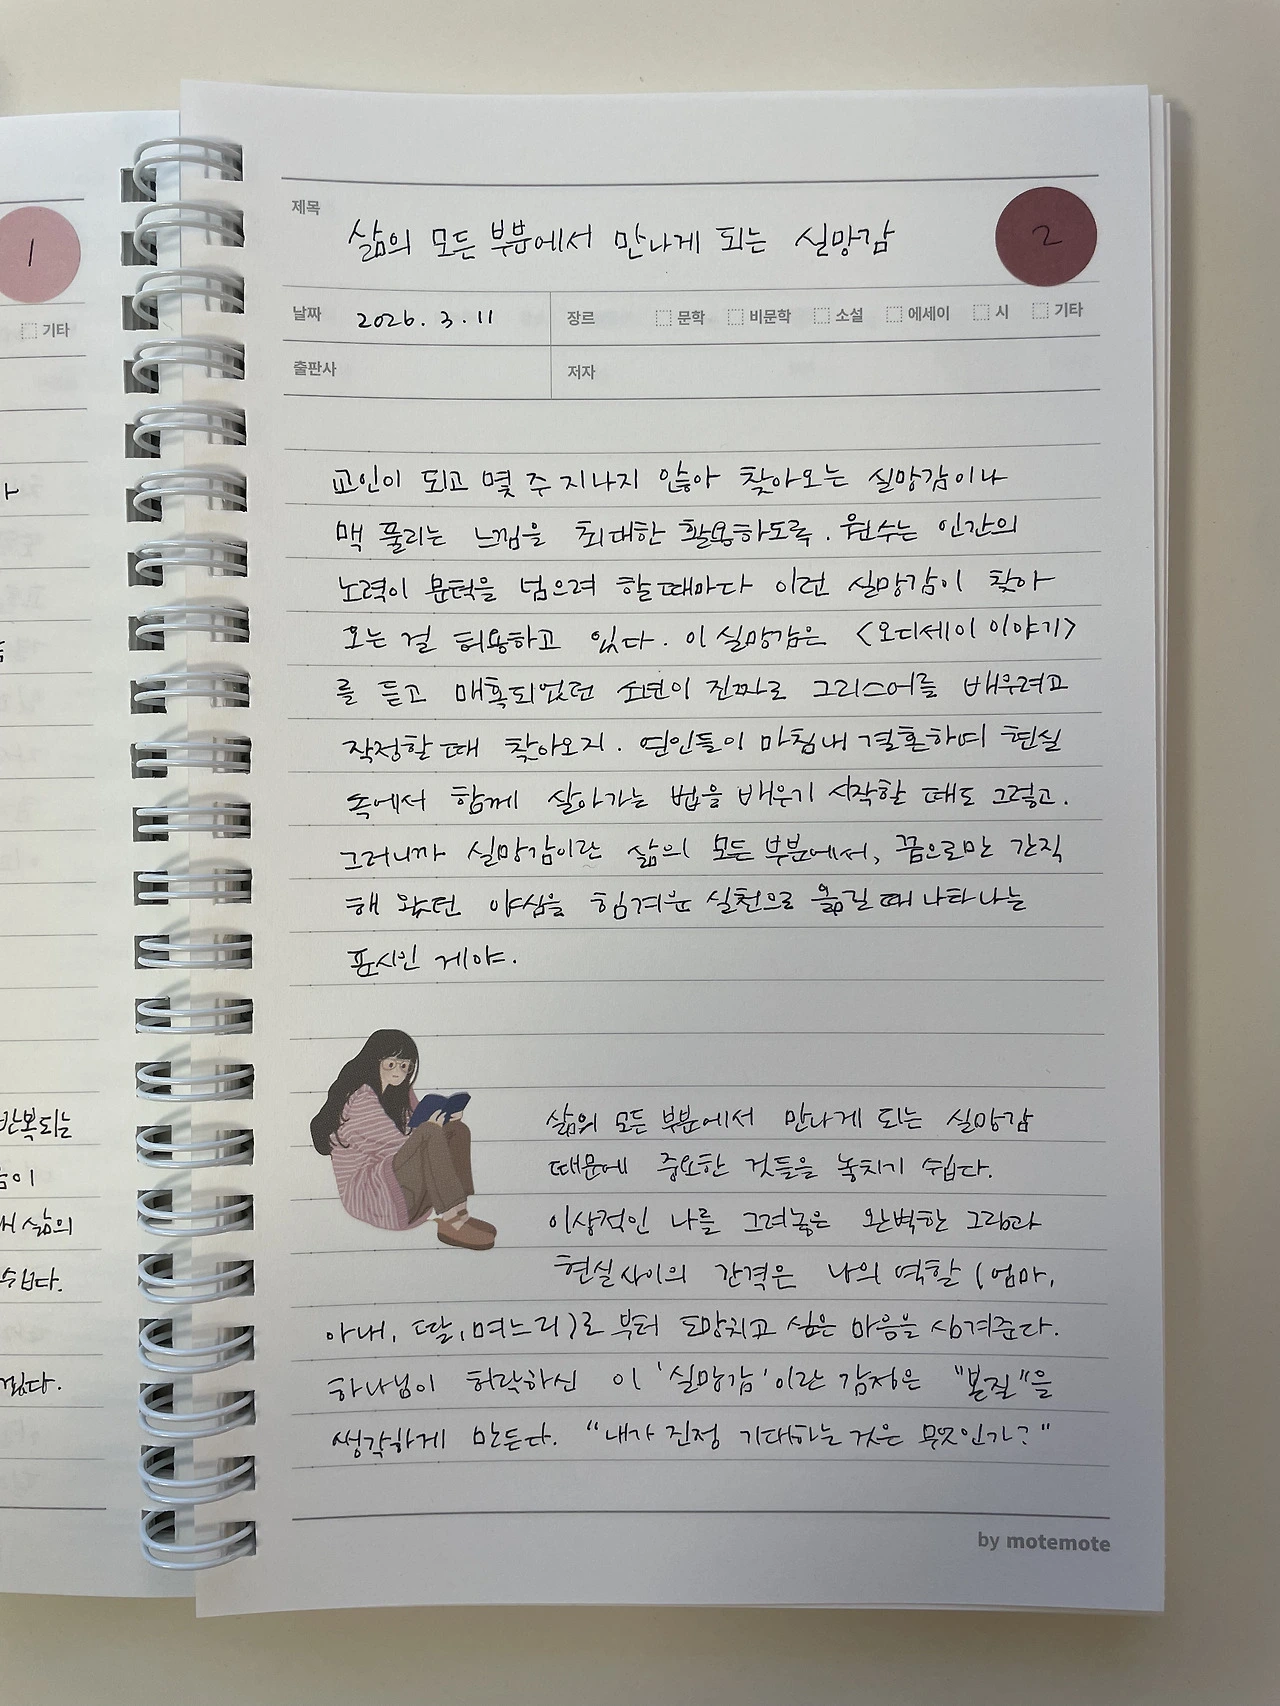 제목
삶의 모든 부분에서 만나게 되는 실망감
2
날짜 2026. 3. 11 장르 문학 비문학 소설 에세이 시 기타
출판사 저자
교인이 되고 몇 주 지나지 않아 찾아오는 실망감이나
맥 풀리는 느낌을 최대한 활용하도록. 원수는 인간의
노력이 문턱을 넘으려 할 때마다 이런 실망감이 찾아
오는 걸 허용하고 있다. 이 실망감은 <오디세이 이야기>
를 듣고 매혹되었던 소년이 진짜로 그리스어를 배우려고
작정할 때 찾아오지. 연인들이 마침내 결혼하여 현실
속에서 함께 살아가는 법을 배우기 시작할 때도 그렇고.
그러니까 실망감이란 삶의 모든 부분에서, 꿈으로만 간직
해 왔던 야심을 힘겨운 실천으로 옮길 때 나타나는
표시인 게야.
삶의 모든 부분에서 만나게 되는 실망감
때문에 중요한 것들을 놓치기 쉽다.
이상적인 나를 그려놓은 완벽한 그림과
현실 사이의 간격은 나의 역할 (엄마,
아내, 딸, 며느리)로 부터 도망치고 싶은 마음을 심겨준다.
하나님이 허락하신 이 '실망감'이란 감정은 "본질"을
생각하게 만든다. "내가 진정 기대하는 것은 무엇인가?"
by motemote
1
기타
반복되는
삶의
쉽다.